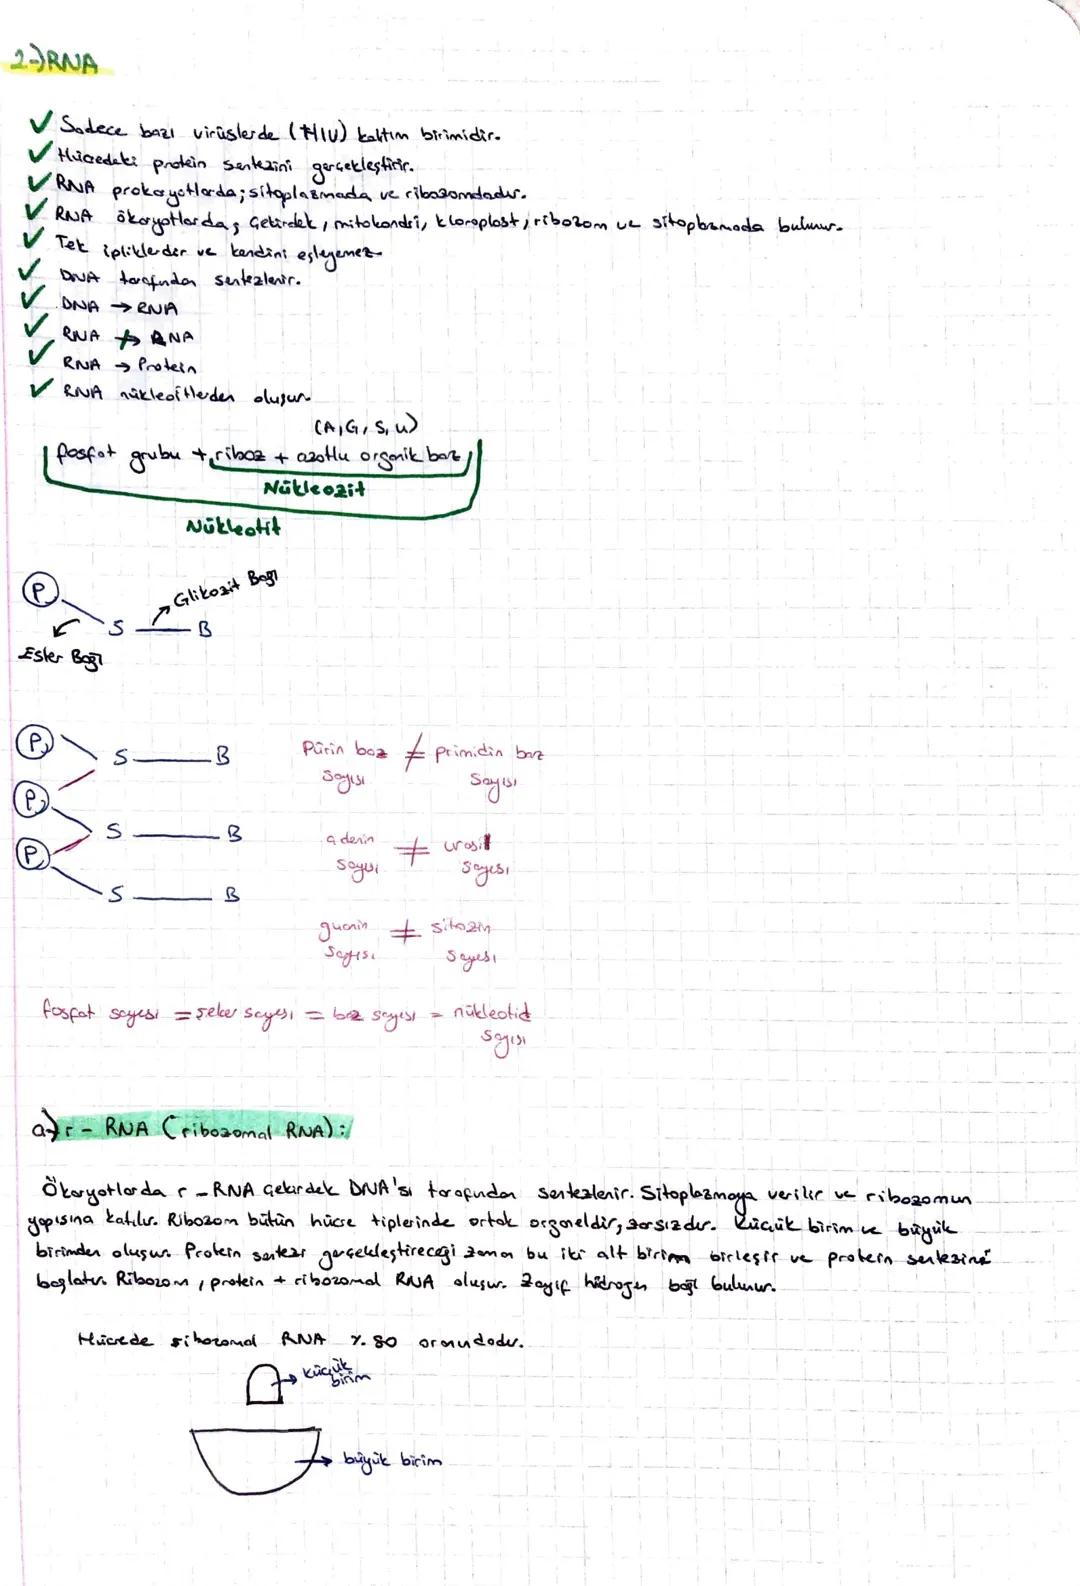 2-)RNA
✓ Sadece bazı virüslerde (HIV) kalıtım birimidir.
✓ Hücredeki protein sentezini gerçekleştirir.
✓ RNA prokaryotlarda; sitoplazmada ve ribozomdadır.
✓ RNA ökaryotlarda; Çekirdek, mitokondri, kloroplast, ribozom ve sitoplazmada bulunur.
✓ Tek ipliklerdir ve kendini eşleyemez.
✓ DNA tarafından sentezlenir.
✓ DNA → RNA
✓ RNA ↛ RNA
✓ RNA → Protein
✓ RNA nükleoitlerden oluşur.
(A, G, S, U)
fosfat grubu + riboz + azotlu organik baz
Nükleozit
Nükleotit
P
Glikozit Bağı
S B
Ester Bağı
P S B
P
S B
P
S B
Pürin baz ≠ primidin baz
sayısı sayısı
adenin ≠ urasil
sayısı sayısı
guanin ≠ sitozin
sayısı sayısı
fosfat sayısı = şeker sayısı = baz sayısı = nükleotid
sayısı
a-) r - RNA (ribozomal RNA):
Ökaryotlarda r - RNA çekirdek DNA'sı tarafından sentezlenir. Sitoplazmaya verilir ve ribozomun
yapısına katılır. Ribozom bütün hücre tiplerinde ortak organeldir, zarsızdır. Küçük birim ve büyük
birimden oluşur. Protein sentezi gerçekleştireceği zaman bu iki alt birim birleşir ve protein sentezine
başlatır. Ribozom, protein + ribozomal RNA oluşur. Zayıf hidrojen bağı bulunur.
Hücrede ribozomal RNA %80 oranındadır.
küçük
birim
büyük birim